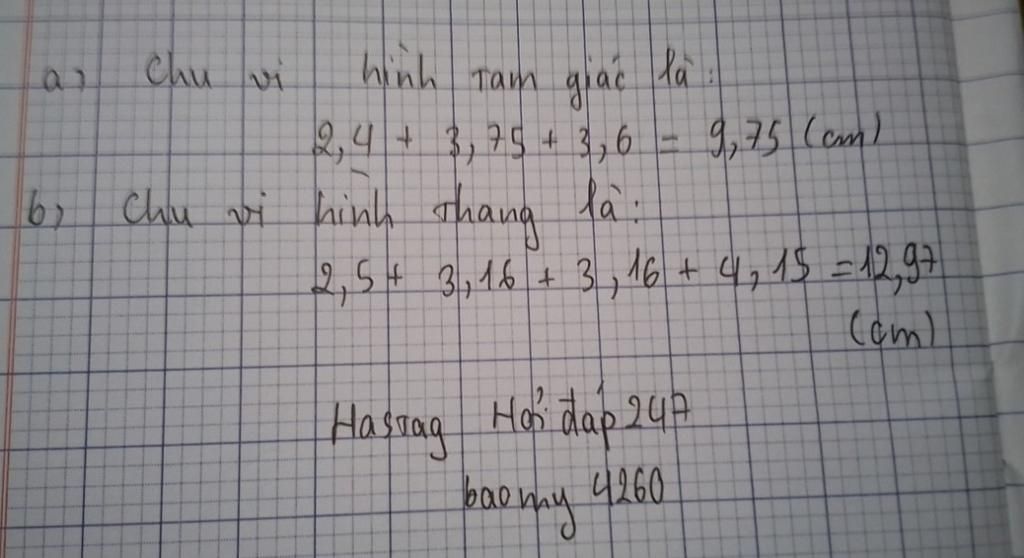 a) Chu vi hình tam giác là:
2,4 + 3,75 + 3,6 = 9,75 (cm)
b) Chu vi hình thang là:
2,5 + 3,16 + 3,16 + 4,15 = 12,97
(cm)
Hastag Hỏi đáp 247
baomy 4260